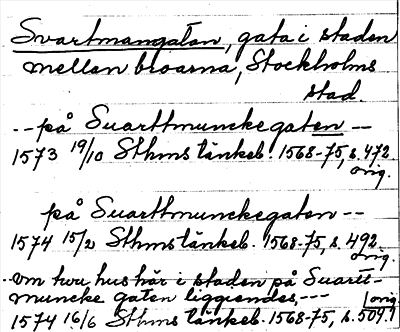 Svartmangatan, gata i staden
mellan broarna, Stockholms
stad.
-- på Suarttmunckegaten --
1573 19/10 Sthms tänkeb. 1568-75, s. 472
orig.
på Suarttmunckegaten --
1574 15/2 Sthms tänkeb. 1568-75, s. 492.
orig.
-- om huu hus här i staden på Suartt-
muncke gaten liggiendes, ---
orig.
1574 16/6 Sthms tänkeb. 1568-75, s. 509.